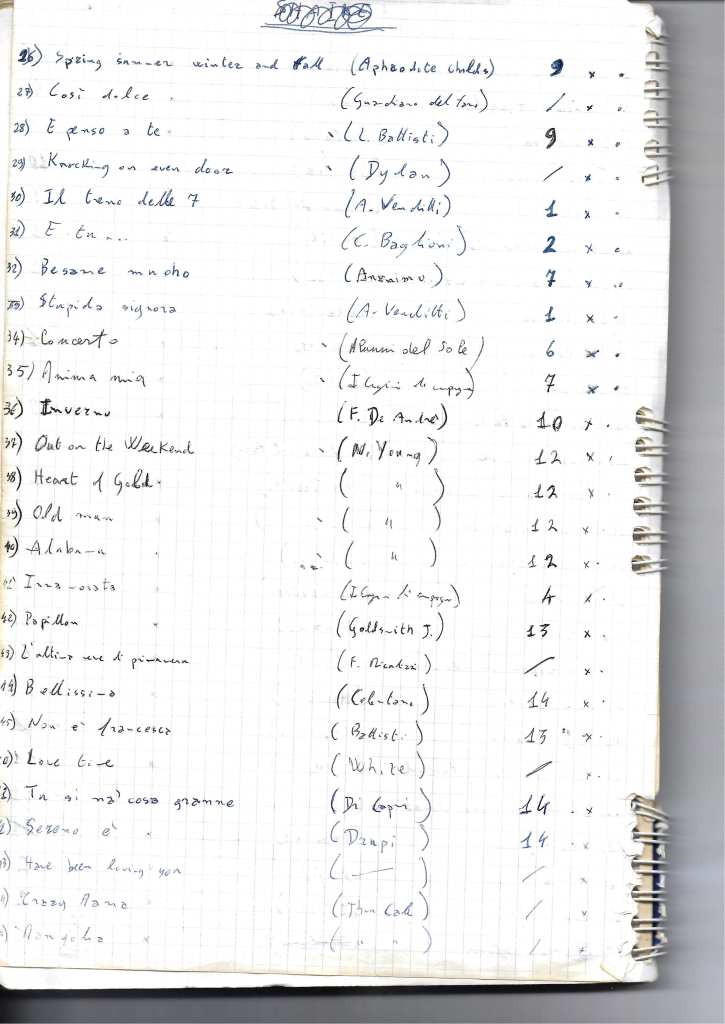 26) Spring summer winter and fall (Aphrodite childs) 9 x .
27) Così dolce . (Guardiano del faro) / x .
28) E penso a te . (L. Battisti) 9 x .
29) Knocking on even door (Dylan) / x .
30) Il treno delle 7 (A. Venditti) 1 x .
31) E tu... (C. Baglioni) 2 x .
32) Besame mucho 7 x .
33) Stupida signora (A. Venditti) 1 x .
34) Concerto (Alunni del Sole) 6 x .
35) Anima mia (I Cugini di campagna) 7 x .
36) Inverno (F. De André) 10 x .
37) Out on the Weekend (N. Young) 12 x .
38) Heart of Gold. ( " ) 12 x
39) Old man ( " ) 12 x .
40) Alabama ( " ) 12 x .
41) Innamorata (I Cugini di campagna) 4 x .
42) Papillon (Goldsmith J.) 13 x .
43) L'ultima neve di primavera / x .
44) Bellissima (Celentano) 14 x .
45) Non è francesca (Battisti) 13 x .
Love time (White) / x .
Tu si na' cosa granne (Di Capri) 14 x
Sereno è . (Drupi) 14 x
Have been loving you ( — ) / x
/ x
( " " ) / x